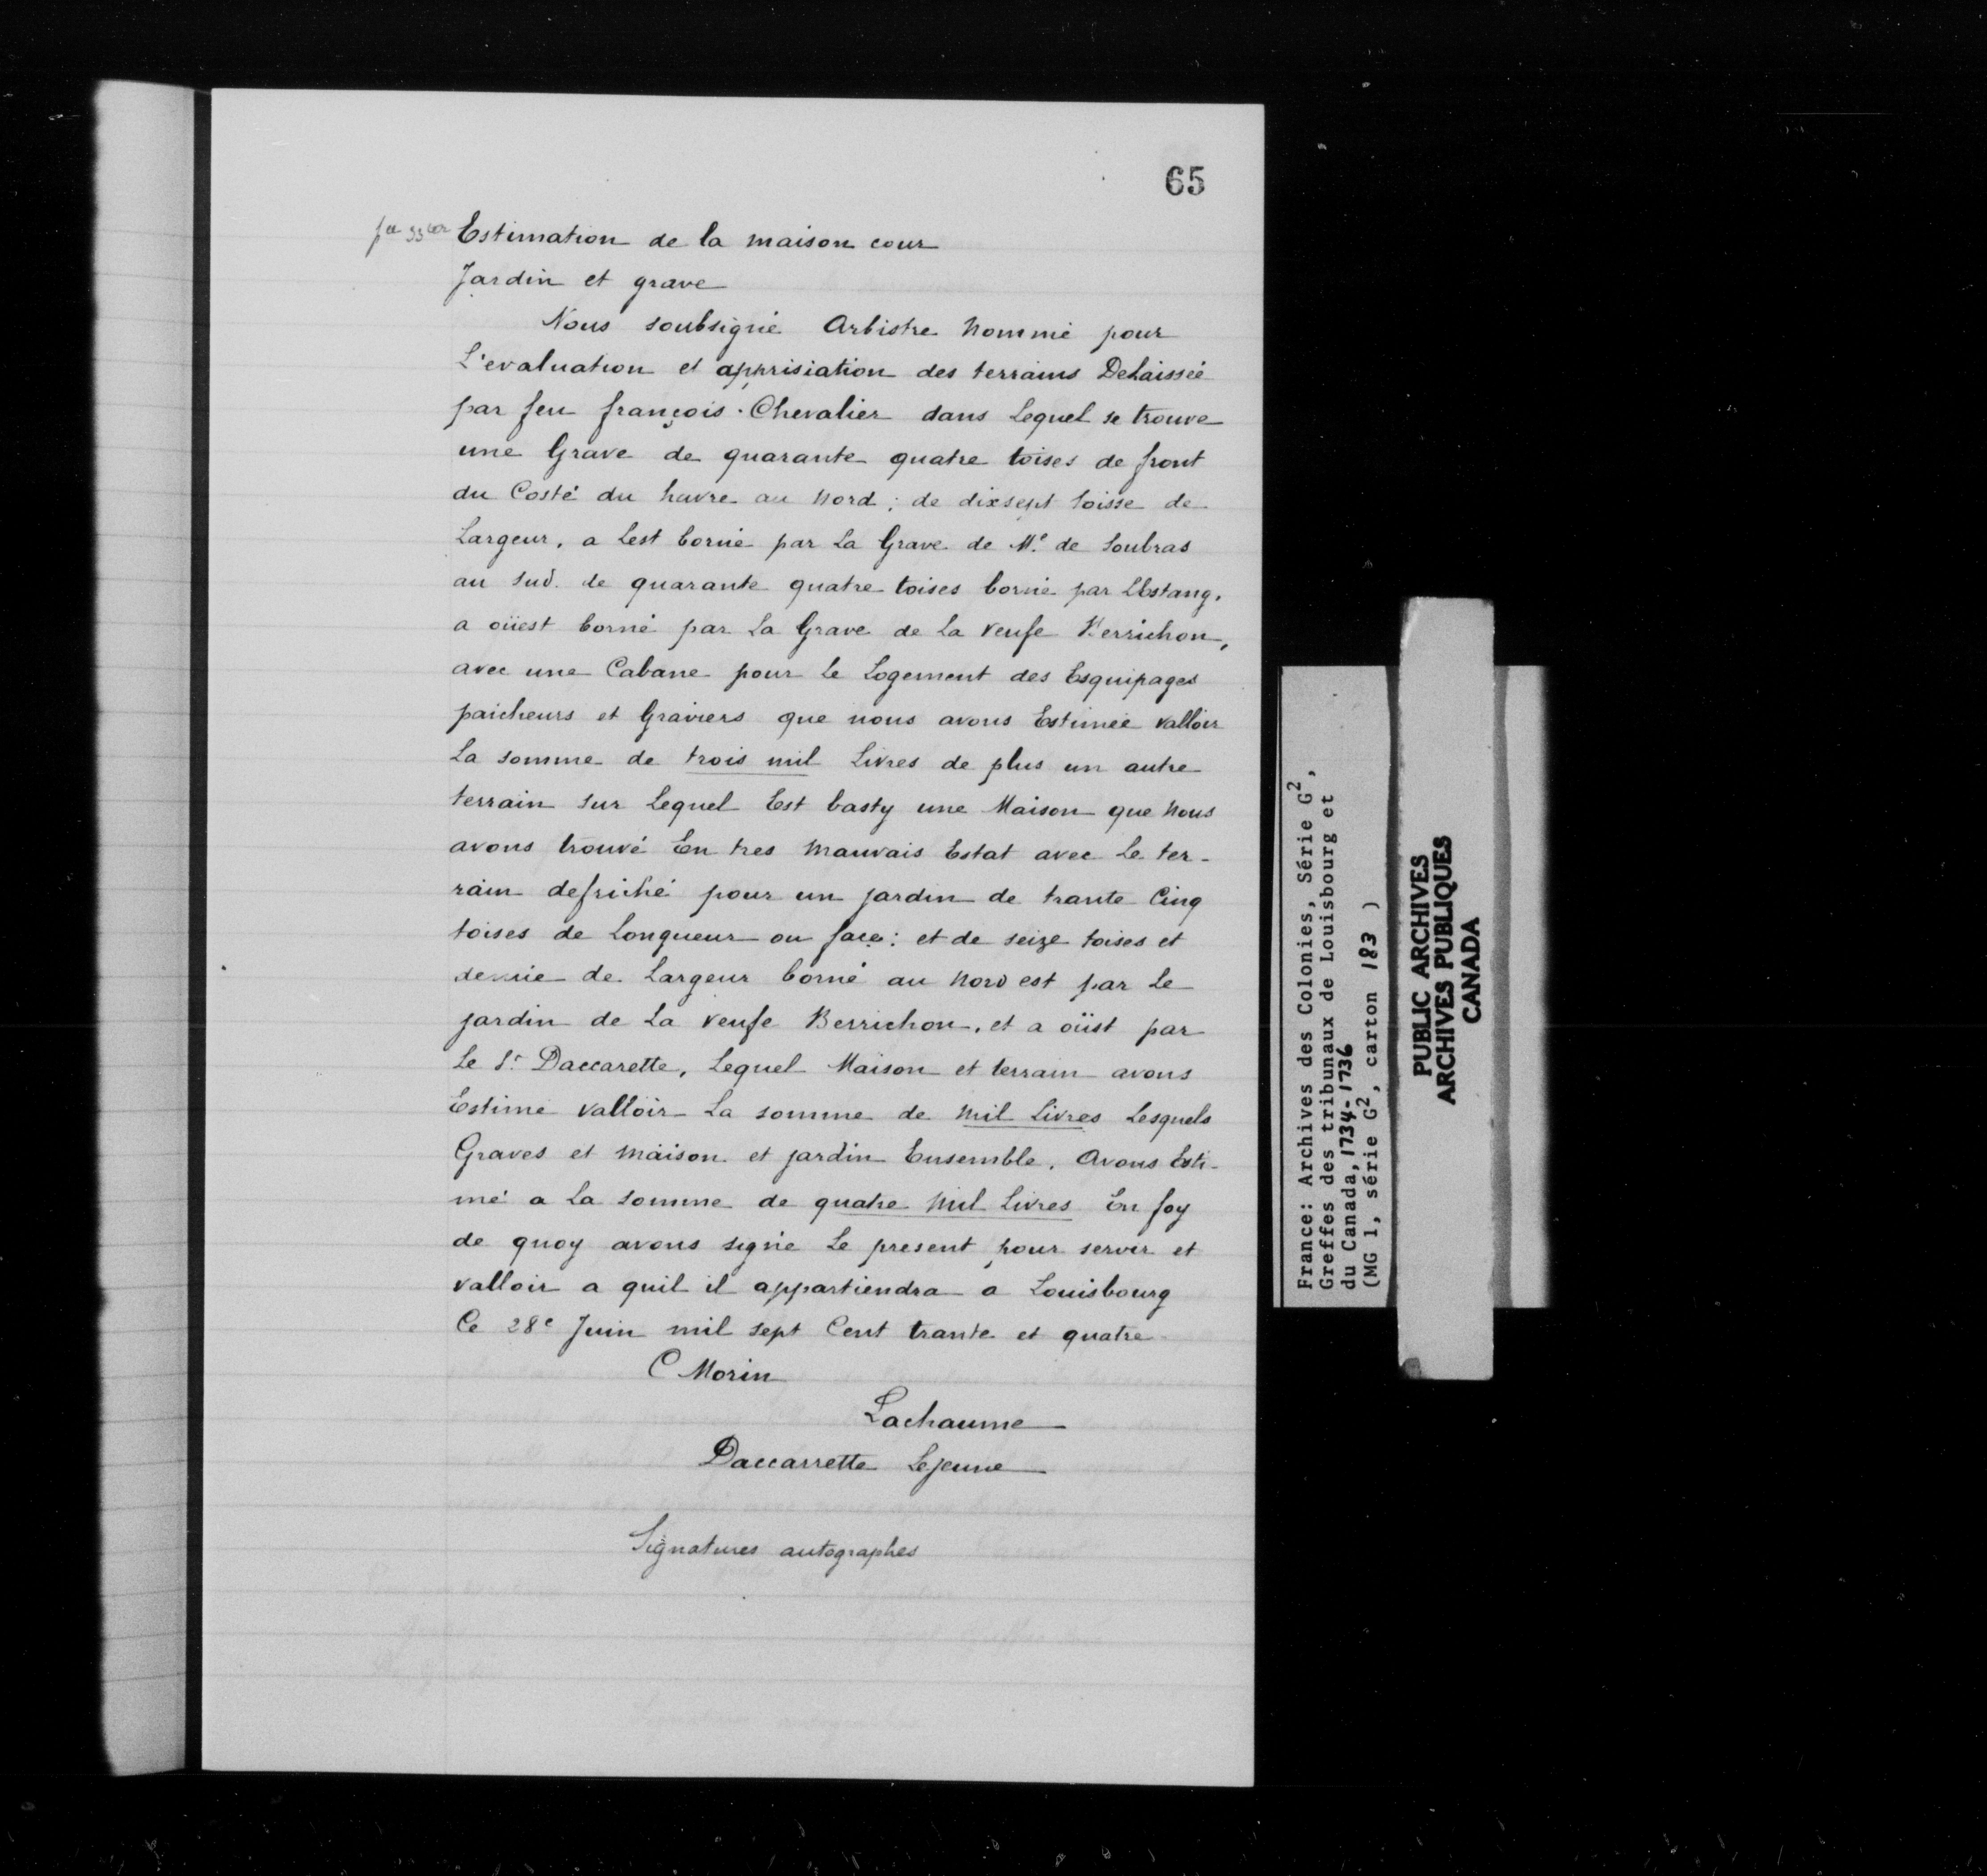 65
Estimation de la maison cour
Jardin et grave
Nous soubsigné Arbistre nommé pour
L'evaluation et apprisiation des terrains Delaissée
par feu françois Chevalier dans Lequel se trouve
une Grave de quarante quatre toises de front
du Costé du havre au nord ; de dixsept toisse de
Largeur, a Lest borné par La Grave de Mr. de Soubras
au Sud. de quarante quatre toises borné par LEstang.
a oüest borné par La Grave de La Veufe Berrichon,
avec une Cabane pour Le Logement des Esquipages
paicheurs et Graviers que nous avons Estimée valloir
La somme de trois mil Livres de plus un autre
terrain sur Lequel Est basty une Maison que Nous
avons trouvé En tres mauvais Estat avec Le ter-
rain defriché pour un jardin de trante Cinq
toises de Longueur ou face : et de seize toises et
demie de Largeur borné au Nord est par Le
jardin de La Veufe Berrichon, et a oüist par
Le Sr. Daccarette, Lequel Maison et terrain avons
Estimé valloir La somme de mil Livres Lesquels
Graves et maison et jardin Ensemble. Avons Esti-
mé a La somme de quatre mil Livres En foy
de quoy avons signé Le present pour servir et
valloir a quil il appartiendra a Louisbourg
Ce 28e Juin mil sept Cent trante et quatre
C Morin
Lachaume
Daccarrette Lejeune
Signatures autographes
France: Archives des Colonies, Série G2,
Greffes des tribunaux de Louisbourg et
du Canada, 1734-1736
(MG 1, série G2, carton 183 )
PUBLIC ARCHIVES
ARCHIVES PUBLIQUES
CANADA